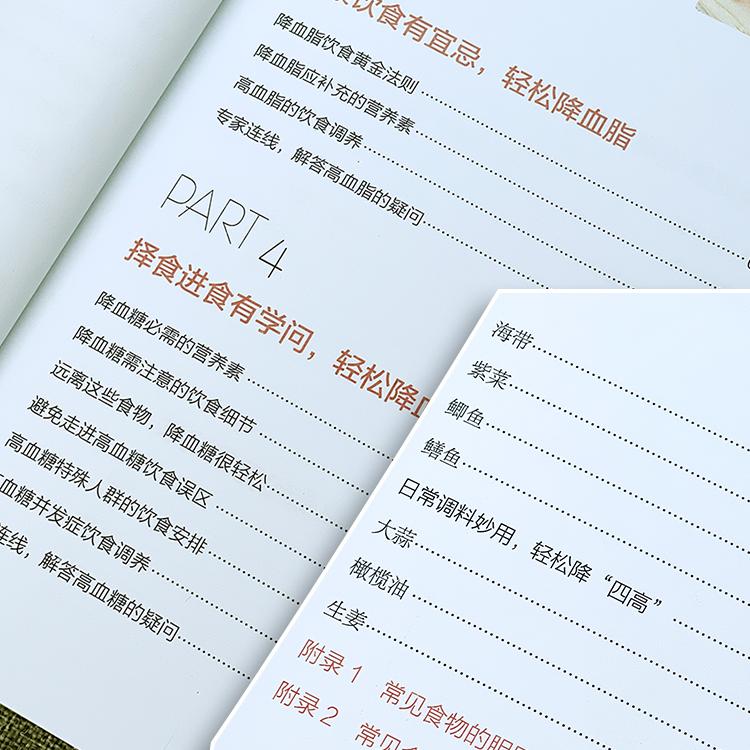 饮食有宜忌，轻松降血脂
降血脂饮食黄金法则
降血脂应补充的营养素
高血脂的饮食调养
专家连线，解答高血脂的疑问
PART 4
择食进食有学问，轻松降
降血糖必需的营养素
降血糖需注意的饮食细节
远离这些食物，降血糖很轻松
避免走进高血糖饮食误区
高血糖特殊人群的饮食安排
血糖并发症饮食调养
连线，解答高血糖的疑问
海带
紫菜
鲫鱼
鳝鱼
日常调料妙用，轻松降“四高”
大蒜
橄榄油
生姜
附录 1 常见食物的
附录 2 常见